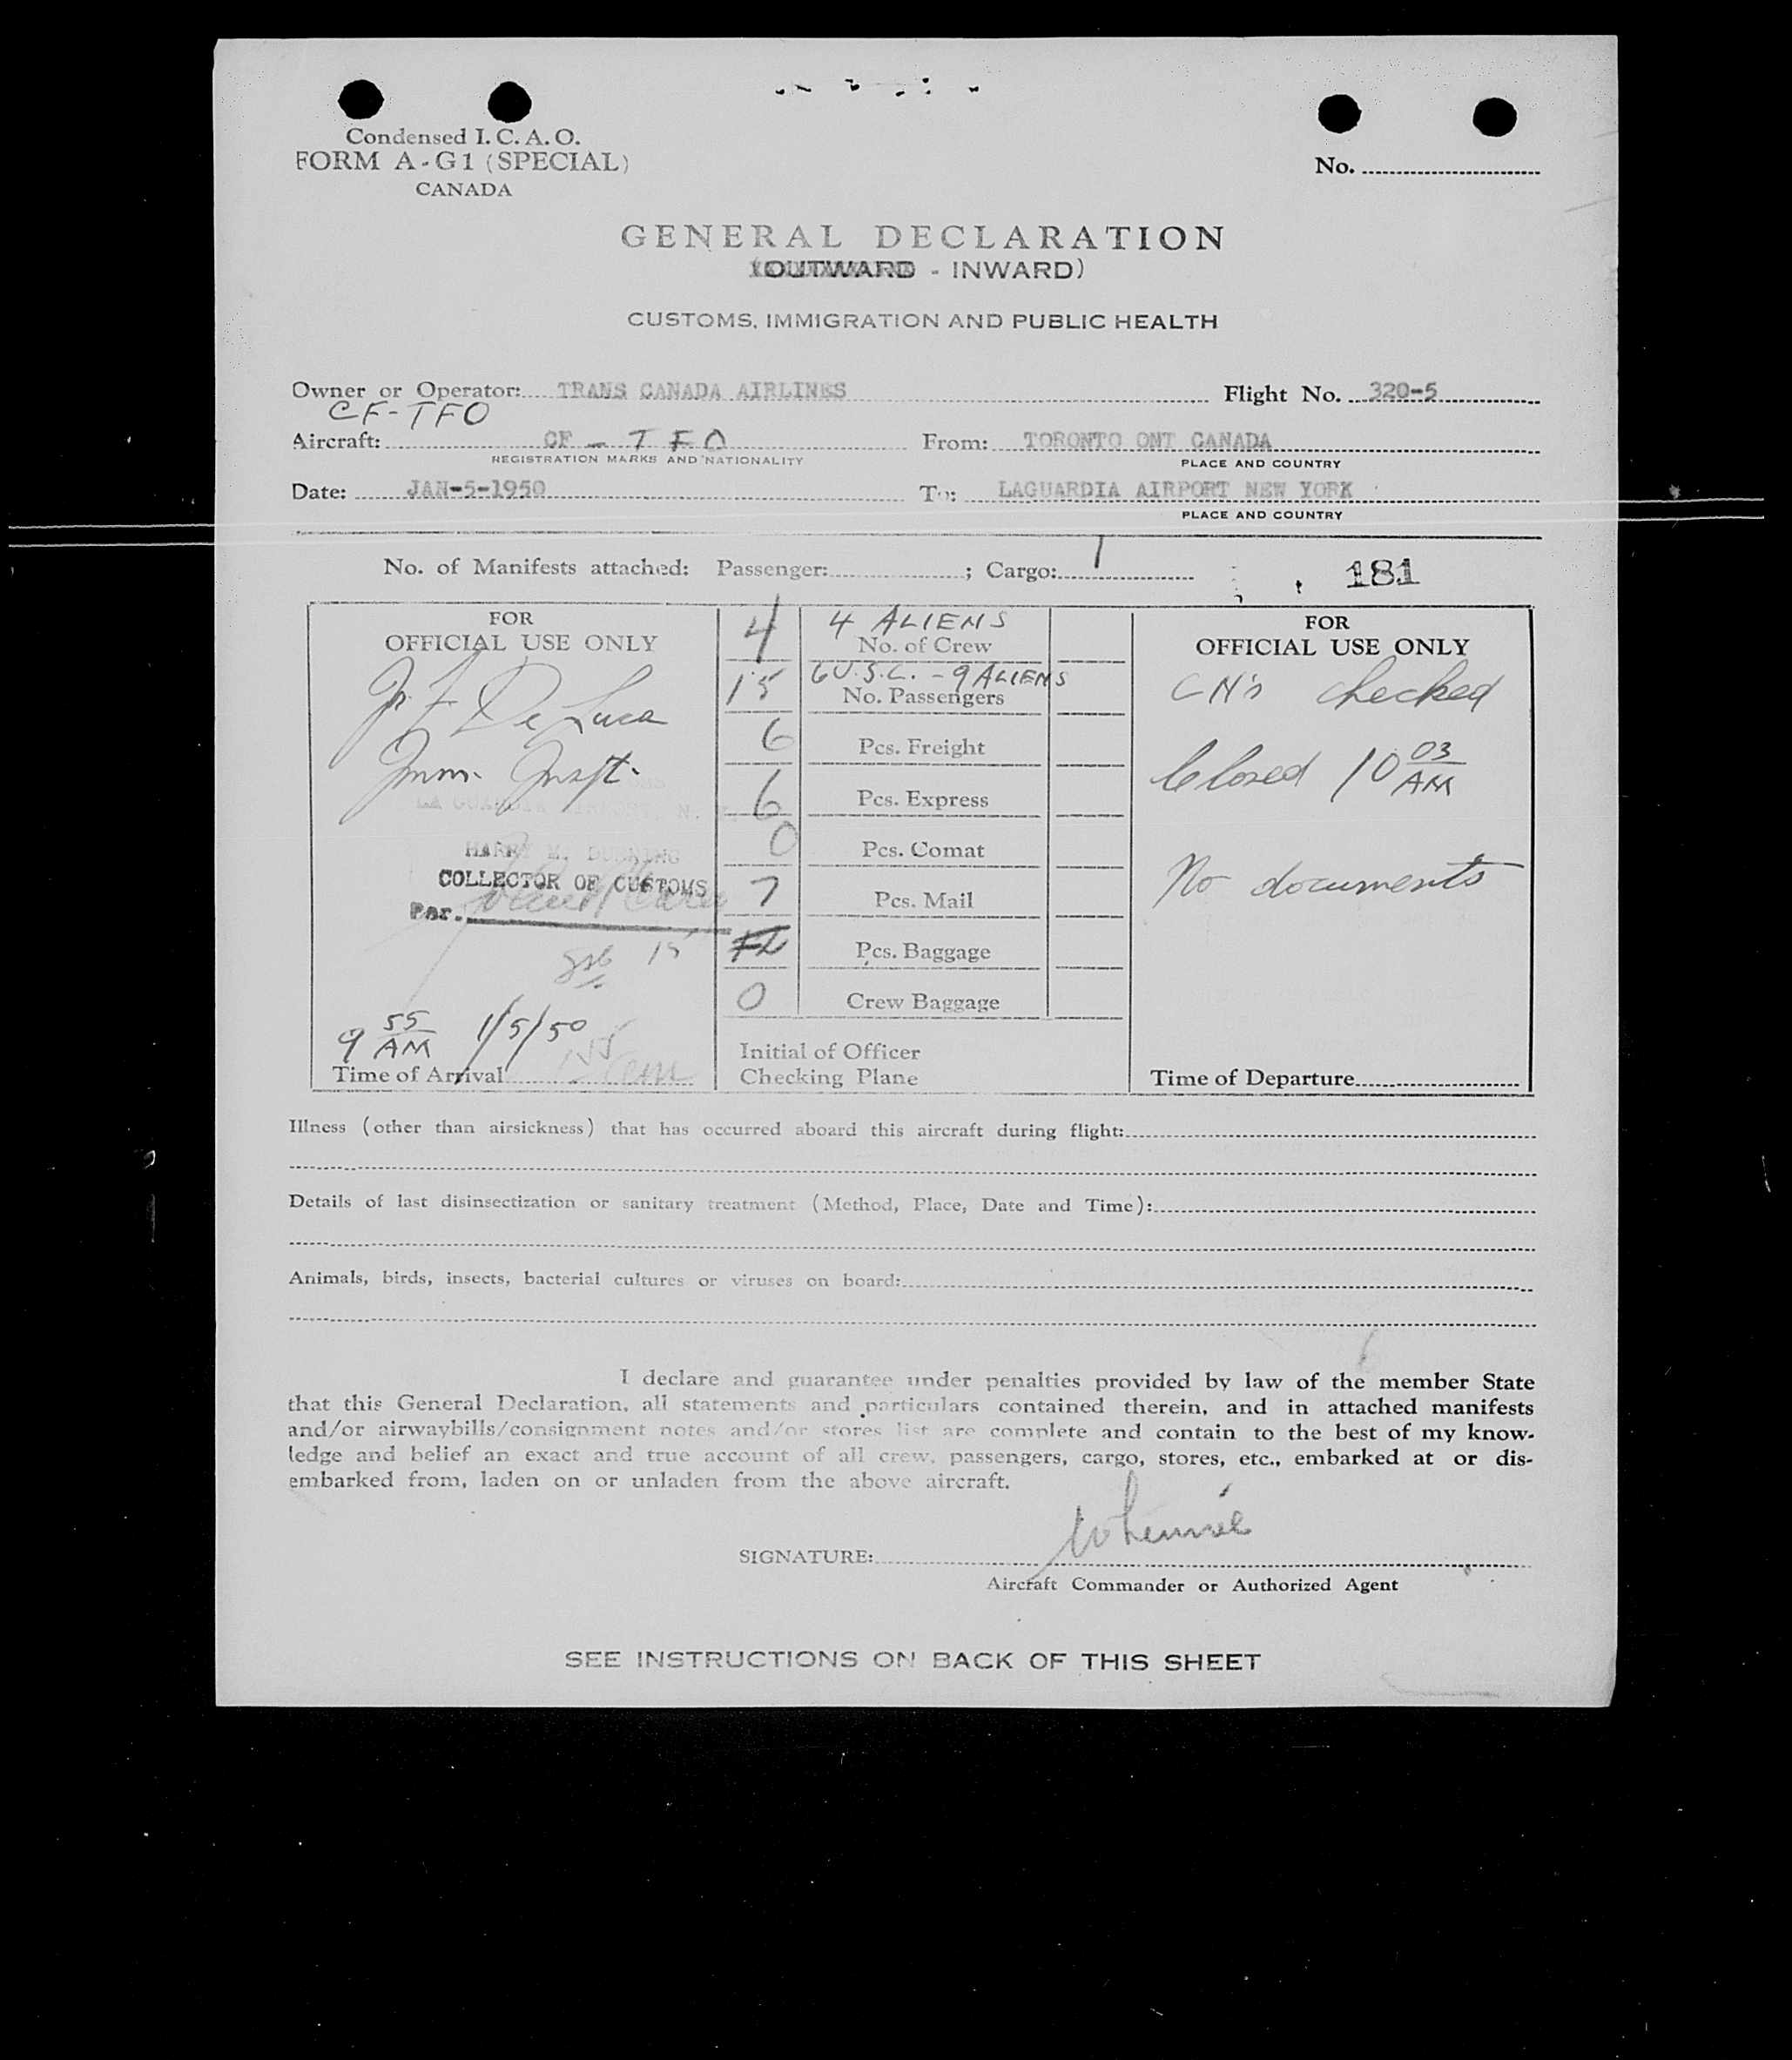 Condensed I. C. A. O.
FORM A - G 1 (SPECIAL)
CANADA
No.
GENERAL DECLARATION
(OUTWARD - INWARD)
CUSTOMS, IMMIGRATION AND PUBLIC HEALTH
Owner or Operator: TRANS CANADA AIRLINES Flight No. 320-5
CF-TFO
Aircraft: CF - T F O From: TORONTO ONT CANADA
REGISTRATION MARKS AND NATIONALITY PLACE AND COUNTRY
Date: JAN-5-1950 To: LAGUARDIA AIRPORT NEW YORK
PLACE AND COUNTRY
No. of Manifests attached: Passenger: ; Cargo: 1 181
FOR
OFFICIAL USE ONLY
De Luca
Imm. Inspt.
LA GUARDIA AIRPORT, N.
HARRY M. DURNING
COLLECTOR OF CUSTOMS
Per.
15
9 55 AM 1/5/50
Time of Arrival
4 4 ALIENS
No. of Crew
15 6 U.S.C. - 9 ALIENS
No. Passengers
6 Pcs. Freight
6 Pcs. Express
0 Pcs. Comat
7 Pcs. Mail
Pcs. Baggage
0 Crew Baggage
Initial of Officer
Checking Plane
FOR
OFFICIAL USE ONLY
CN's checked
Closed 10 03 AM
No documents
Time of Departure
Illness (other than airsickness) that has occurred aboard this aircraft during flight:
Details of last disinsectization or sanitary treatment (Method, Place, Date and Time):
Animals, birds, insects, bacterial cultures or viruses on board:
I declare and guarantee under penalties provided by law of the member State
that this General Declaration, all statements and particulars contained therein, and in attached manifests
and/or airwaybills/consignment notes and/or stores list are complete and contain to the best of my know-
ledge and belief an exact and true account of all crew, passengers, cargo, stores, etc., embarked at or dis-
embarked from, laden on or unladen from the above aircraft.
SIGNATURE:
Aircraft Commander or Authorized Agent
SEE INSTRUCTIONS ON BACK OF THIS SHEET